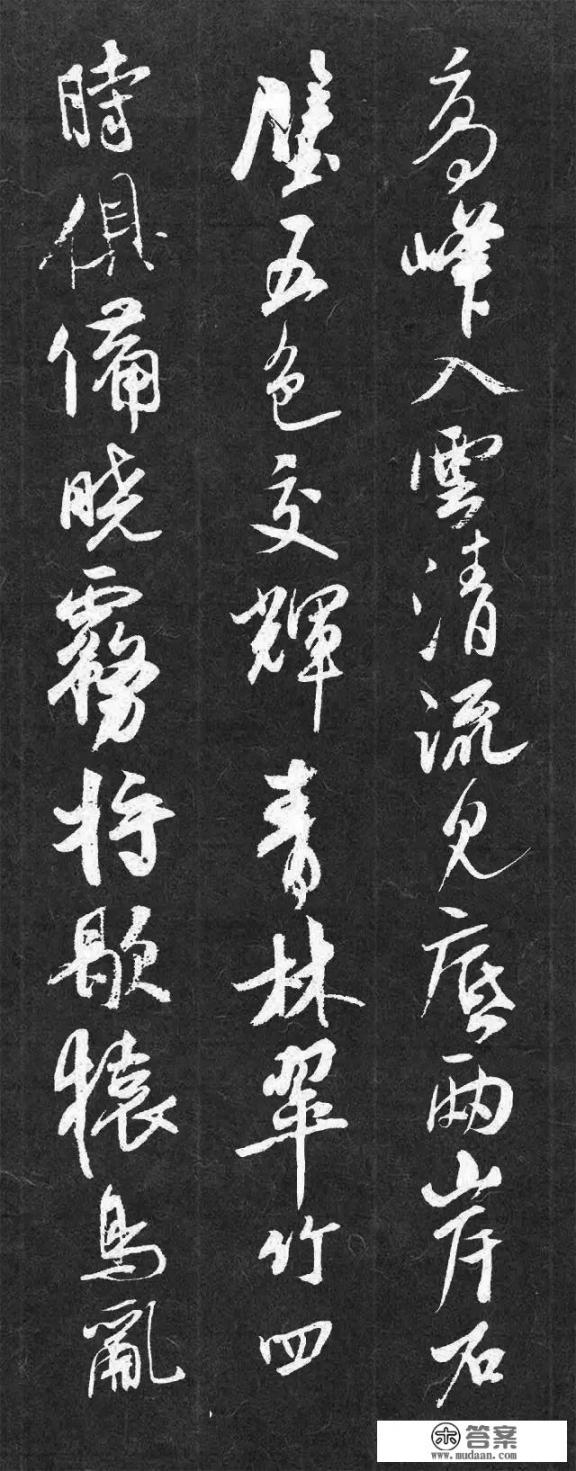 高峰入雲清流見底兩岸石
壁五色交輝青林翠竹四
時俱備曉霧將歇猿鳥亂
答案
www.mudaan.com